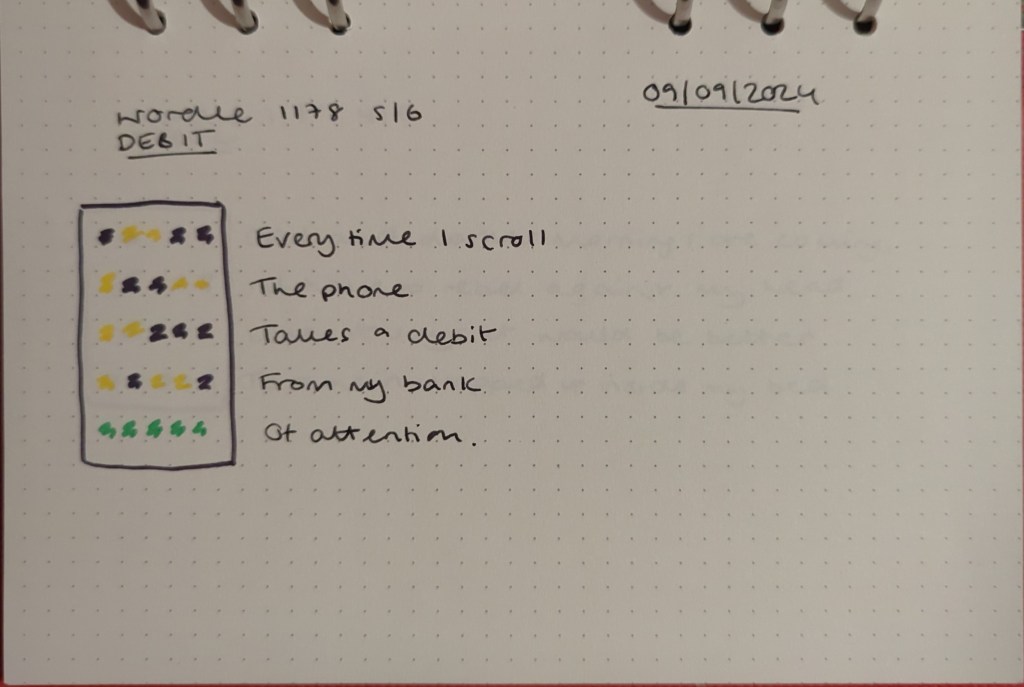 09/09/2024
Wordle 1178 5/6
DEBIT
Every time I scroll
The phone
Takes a debit
From my bank
Of attention.